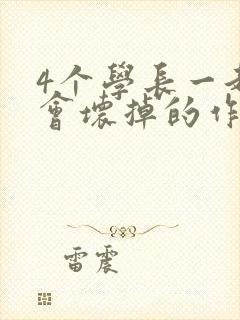 4个學長一
會壞掉的作
雷震